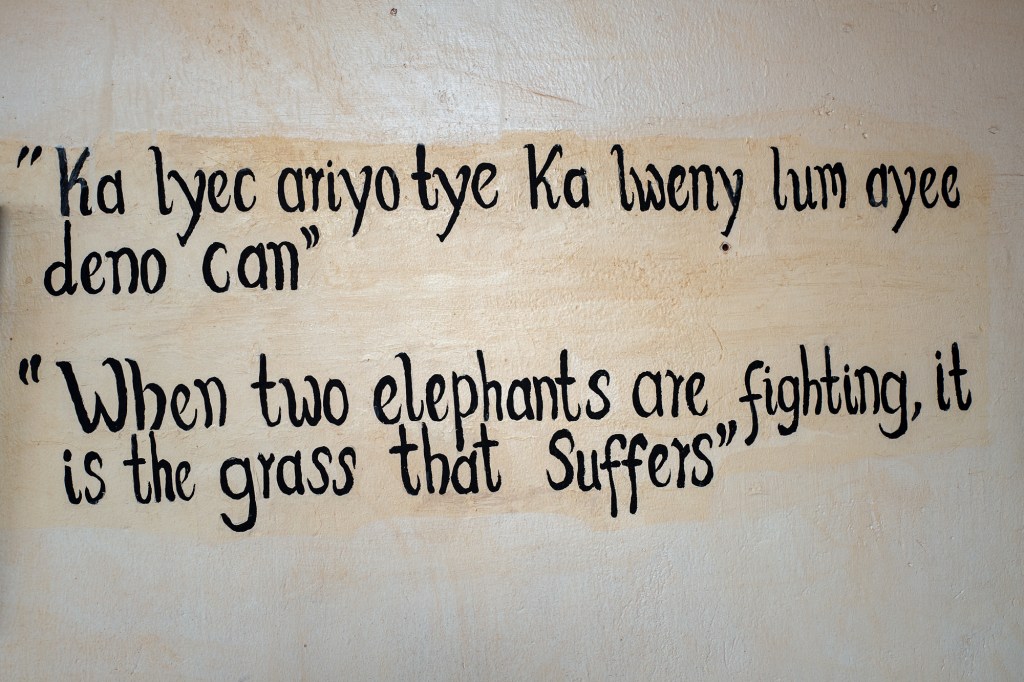 "Ka lyec ariyo tye Ka lweny lum ayee
deno can"
"When two elephants are fighting, it
is the grass that Suffers"